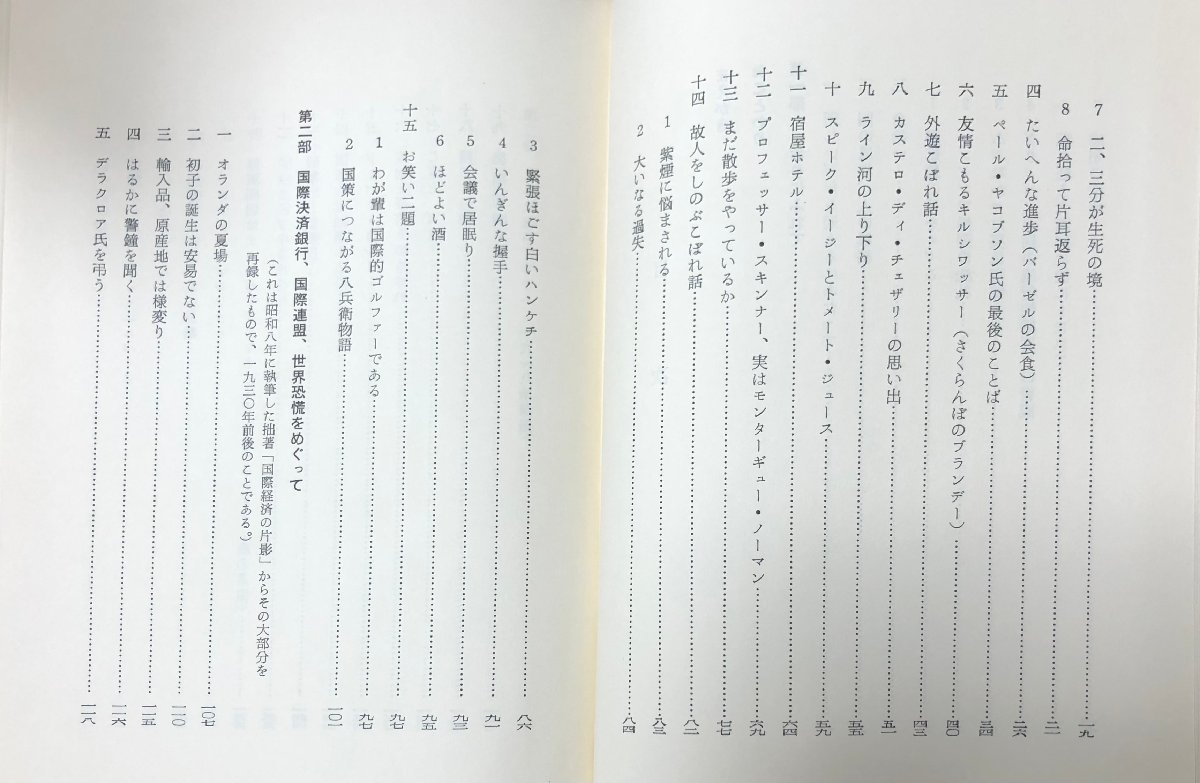 7 二、三分が生死の境……一九
8 命拾って片耳返らず……二一
四 たいへんな進歩（バーゼルの会食）……二六
五 ペール・ヤコブソン氏の最後のことば……三四
六 友情こもるキルシワッサー（さくらんぼのブランデー）……四〇
七 外遊こぼれ話……四三
八 カステロ・ディ・チェザリーの思い出……五一
九 ライン河の上り下り……五五
十 スピーク・イージーとトメート・ジュース……五九
十一 宿屋ホテル……六四
十二 プロフェッサー・スキンナー、実はモンターギュー・ノーマン……六九
十三 まだ散歩をやっているか……七七
十四 故人をしのぶこぼれ話……八二
1 紫煙に悩まされる……八三
2 大いなる過失……八四
3 緊張ほごす白いハンケチ……八六
4 いんぎんな握手……九一
5 会議で居眠り……九三
6 ほどよい酒……九五
十五 お笑い二題……九七
1 わが輩は国際的ゴルファーである……九七
2 国策につながる八兵衛物語……一〇一
第二部 国際決済銀行、国際連盟、世界恐慌をめぐって
（これは昭和八年に執筆した拙著「国際経済の片影」からその大部分を
再録したもので、一九三〇年前後のことである。）
一 オランダの夏場……一〇七
二 初子の誕生は安易でない……一一〇
三 輸入品、原産地では様変り……一一五
四 はるかに警鐘を聞く……一一六
五 デラクロア氏を弔う……一一八